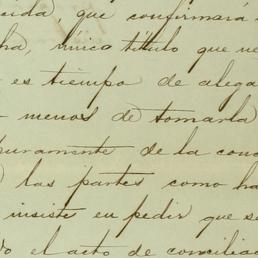 ida, que confirmará
ha, único título que ne
es tiempo de alega
menos de tomarla
puramente de la conc
las partes como ha
insiste en pedir que se
o el acto de concilia